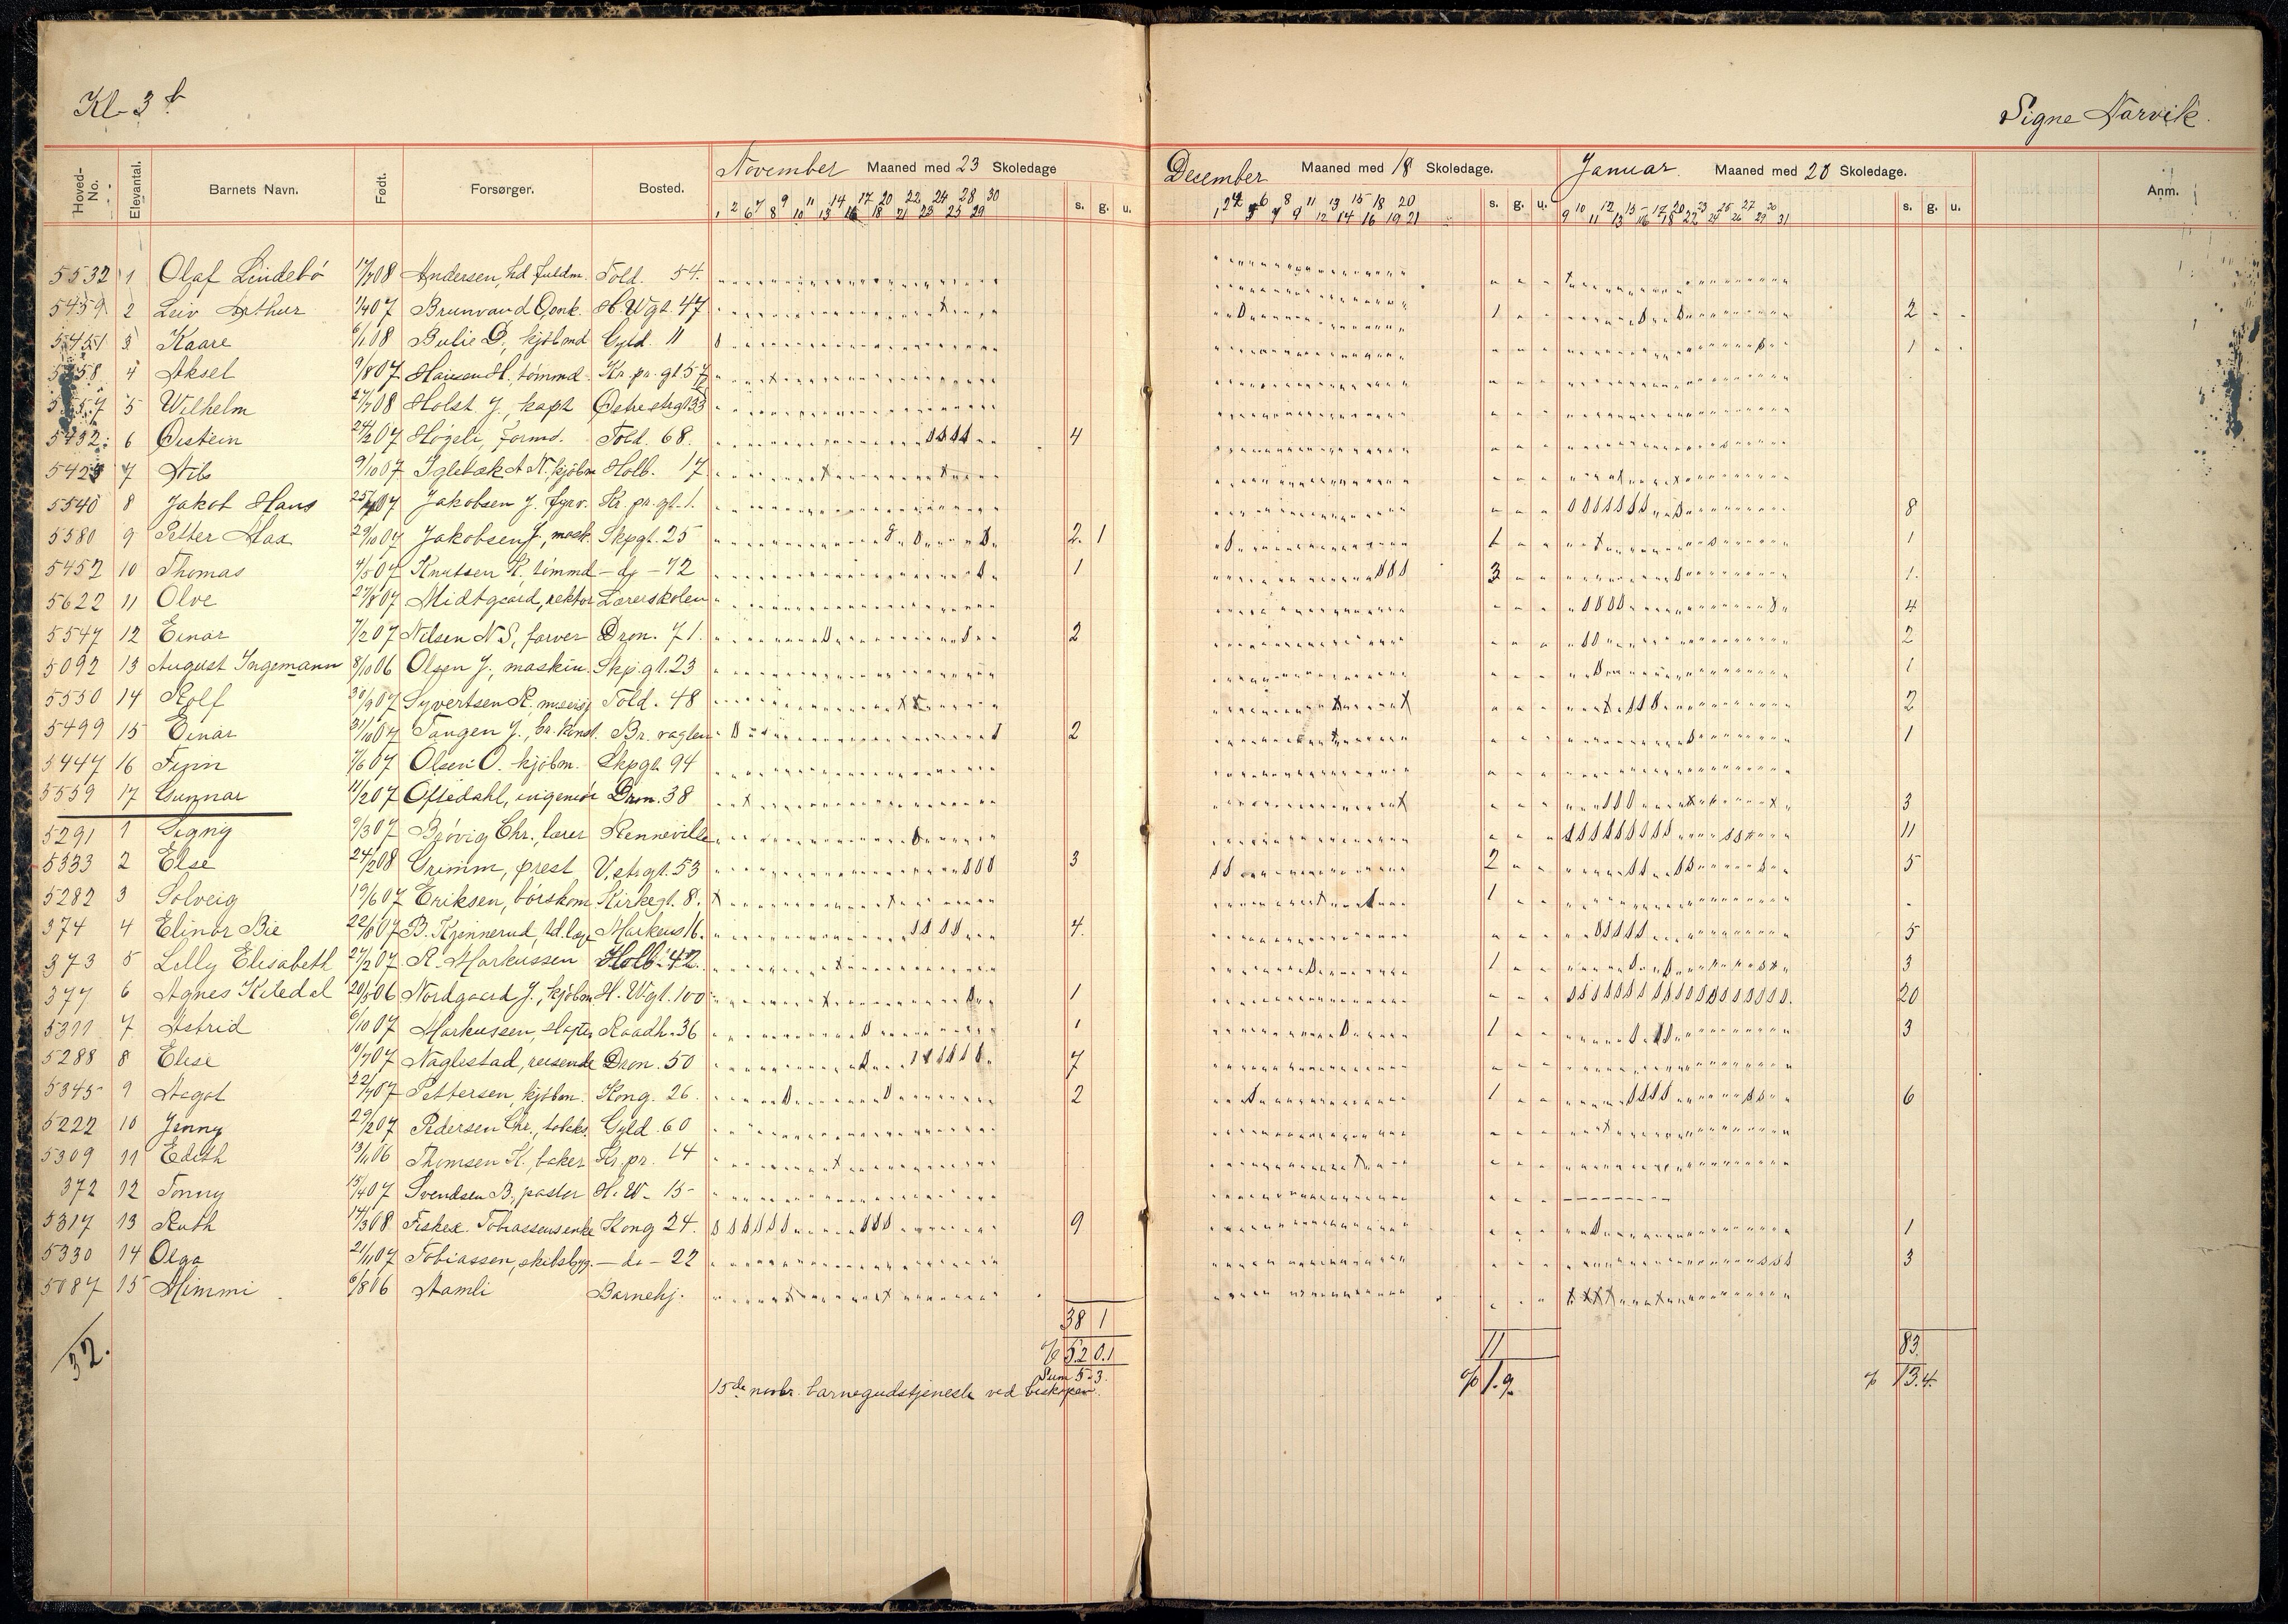 Kl. 3 b
Signe Narvik.
Hoved-No. Elevantal. Barnets Navn. Født. Forsørger. Bosted. November Maaned med 23 Skoledage s. g. u. Desember Maaned med 18 Skoledage. s. g. u. Januar Maaned med 20 Skoledage. s. g. u. Anm.
5532 1 Olaf Lindebó 17/7 08 Andersen, hd. fuldm. Told. 54.
5459 2 Leiv Arthur 1/4 07 Brunvand H. Wgt. 47 1 2
5451 3 Kaare 6/1 08 Bulie D., kjøbmd Gyld. 11 1
5558 4 Aksel 9/8 07 Hansen H. tømmd. Kr. pr. gt 57
5557 5 Wilhelm 27/7 08 Holst J., kapt Østre strgt 33
5432 6 Øistein 24/2 07 Høgeli, formd. Told. 68. 4
5425 7 Nils 9/10 07 Iglebæk A N. kjøbm Holb. 17
5540 8 Jakob Hans 25/4 07 Jakobsen J. fyrv. Kr. pr. gt. 1. 8
5580 9 Petter Max 29/10 07 Jakobsen J., mask. Skpgt. 25 2. 1 1 1
5452 10 Thomas 4/5 07 Knutsen K. tømmd – do – 72 1 3 1.
5622 11 Olve 27/8 07 Midtgaard, rektor Lærerskolen 4
5547 12 Einar 7/2 07 Nilsen N S, farver Dron. 71. 2 2
5092 13 August Ingemann 8/10 06 Olsen J., maskin. Skp.gt. 23 1
5550 14 Rolf 30/9 07 Syvertsen R. Told. 48 2
5499 15 Einar 31/10 07 Tangen J., Br. 2 1
5447 16 Finn 7/6 07 Olsen O. kjøbm. Skpgt. 94
5559 17 Gunnar 11/2 07 Oftedahl, ingeniør Dron. 38 3
5291 1 Signy 9/3 07 Brøvig Chr., lærer Rennevilla 11
5333 2 Else 24/2 08 Grimm, prest V. strgt. 53 3 2 5
5282 3 Solveig 19/6 07 Eriksen, børskom Kirkegt. 8. 1
374 4 Elinor Bie 22/8 07 B. Kjennerud, td. læge Markens 16. 4. 5
373 5 Lilly Elisabeth 27/2 07 R. Markussen Holb. 42. 1 3
377 6 Agnes Kiledal 20/5 06 Nordgaard J., kjøbm H. Wgt. 100 1 20
5311 7 Astrid 6/10 07 Markussen, slagter Raadh. 36 1 1 3
5288 8 Elise 10/7 07 Naglestad, reisende Dron. 50 7
5345 9 Aagot 22/7 07 Pettersen, kjøbm. Kong. 26. 2 1 6
5222 10 Jenny 29/2 07 Pedersen Chr., Gyld. 60
5309 11 Edith 13/11 06 Thomsen H., baker Kr. pr. 14
372 12 Tonny 15/4 07 Svendsen B., pastor H. W. 15
5317 13 Ruth 14/3 08 Fisker. Tobiassens enke Kong 24. 9 1
5330 14 Olga 21/11 07 Tobiassen, skibsbyg. – do – 22 3
5087 15 Mimmi 6/8 06 Aamli Barnehj.
32.
38 1 11 83.
% 5.2 0.1 % 1.9. % 13.4.
Sum 5.3.
15de novbr. barnegudstjeneste ved biskopen.